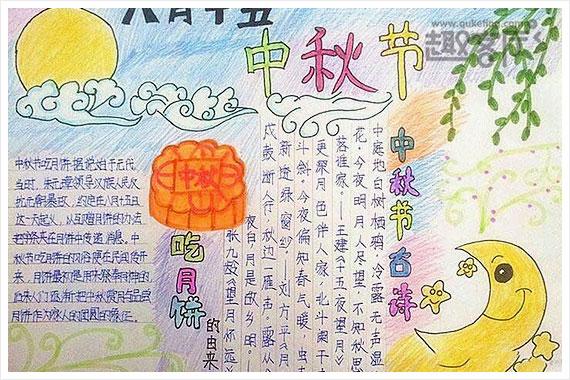 八月十五
www.qukefing.com
趣客厅
中秋节
中秋节吃月饼据说始于元代
当时，朱元璋领导汉族人民
抗元朝暴政，约定在八月十五日
这一天起义，以互赠月饼的办法
把字条夹在月饼中传递消息。中
秋节吃月饼的习俗便在民间传开
来，月饼最初是用来祭奉月神的
后来人们逐渐把中秋赏月与品尝
月饼作为家人团圆的象征。
中秋
吃月饼
的由来
中秋节古诗
中庭地白树栖鸦，冷露无声湿桂
花，今夜月明人尽望，不知秋思
落谁家。—王建《十五夜望月》
更深月色半人家，北斗阑干南
斗斜，今夜偏知春气暖，虫声
新透绿窗纱。—刘方平《月夜》
戍鼓断人行，秋边一雁声，露从今
夜白，月是故乡明。—
张九龄《望月怀远》